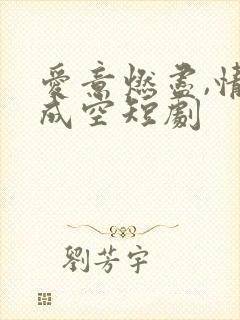 愛意燃盡,情
成空短劇
劉芳宇